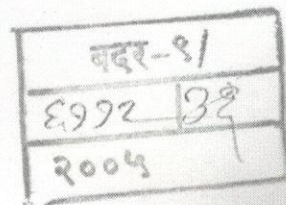 बदर-९/
६११२ ३६
२००५